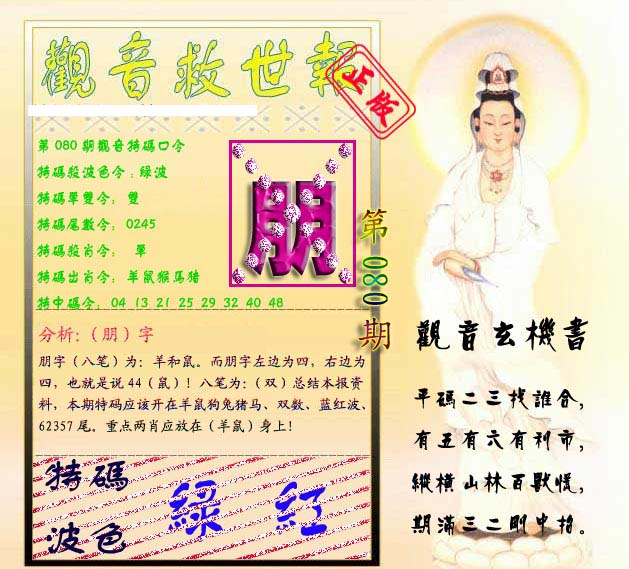 觀音救世報
正版
第080期觀音特碼口令
特碼殺波色令:綠波
特碼單雙令: 雙
特碼尾數令: 0245
特碼殺肖令: 單
特碼出肖令: 羊鼠猴馬豬
特中碼令: 04 13 21 25 29 32 40 48
朋
第080期
分析:(朋)字
朋字(八笔)为:羊和鼠。而朋字左边为四,右边为
四,也就是说44(鼠)!八笔为:(双)总结本报资
料,本期特码应该开在羊鼠狗兔猪马、双数、蓝红波、
62357尾。重点两肖应放在(羊鼠)身上!
特碼
波色
綠 紅
觀音玄機書
平碼二三找誰合,
有五有六有利市,
縱橫山林百獸慌,
期滿三二剛中格。